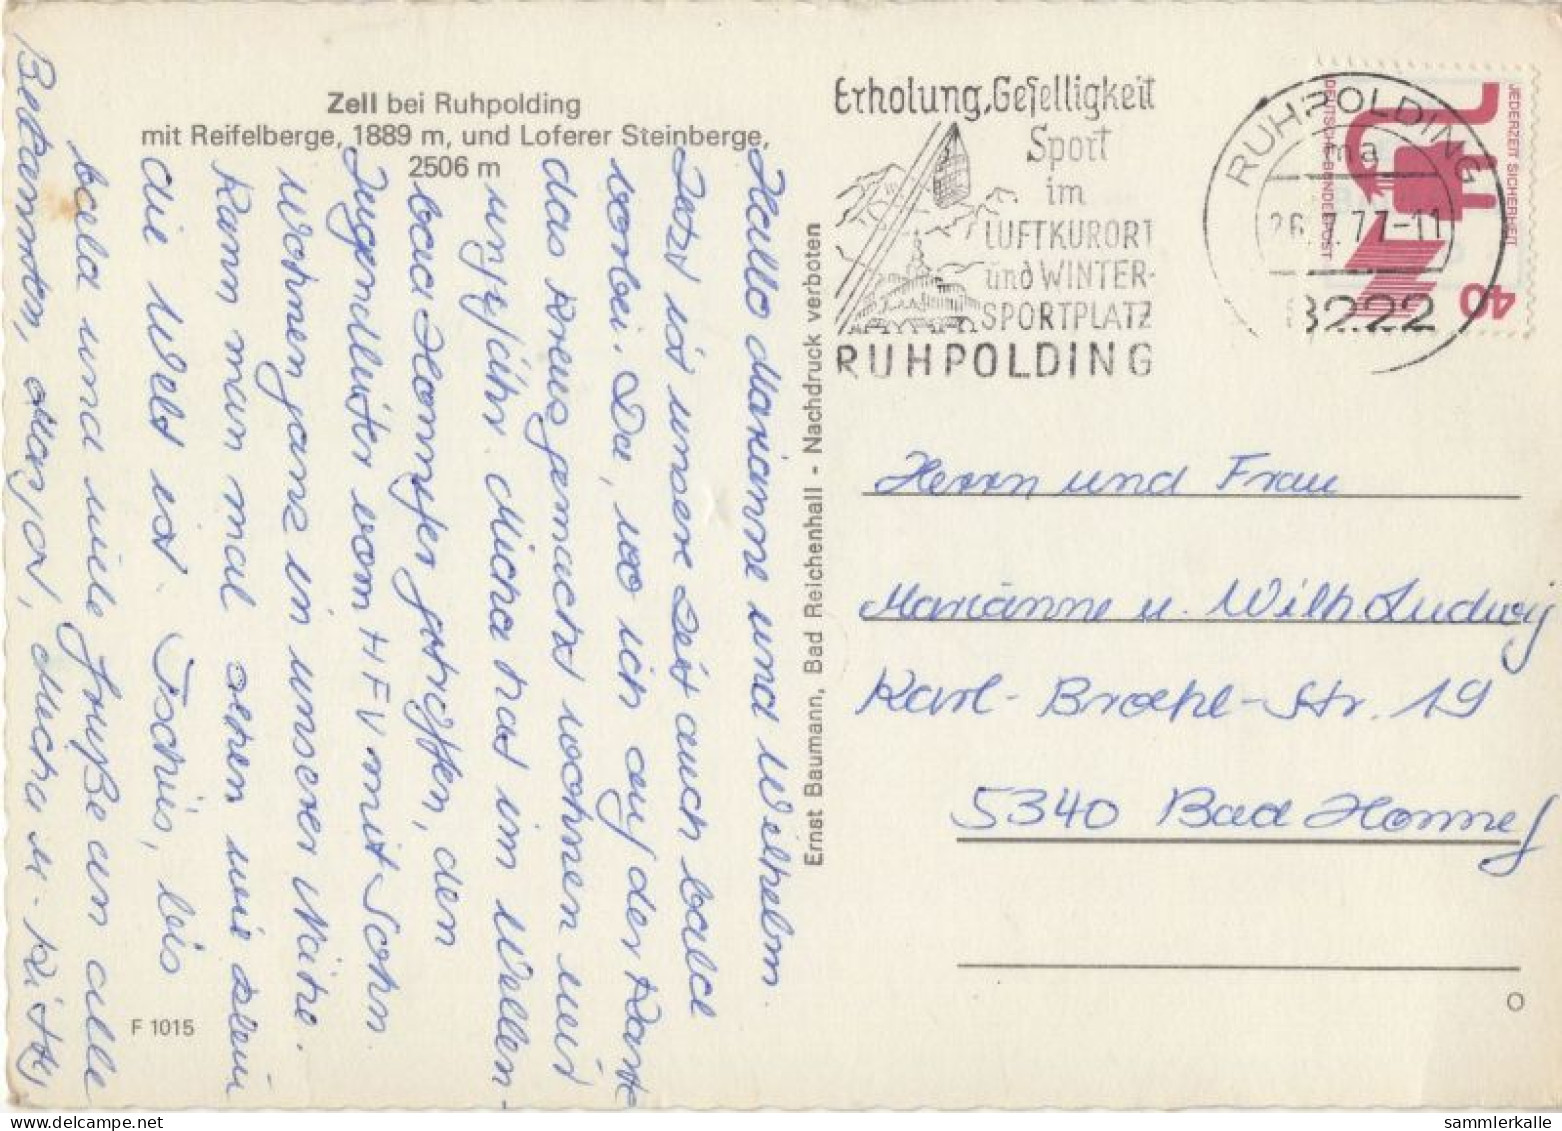 Zell bei Ruhpolding
mit Reifelberge, 1889 m, und Loferer Steinberge,
2506 m
Hallo Marianne und Wilhelm.
Jetzt ist unsere Zeit auch bald
vorbei. Da, wo ich auf der Karte
das Kreuz gemacht wohnen wir
ungefähr. Micha hat im Wellen-
bad Honnefer getroffen, den
Jugendleiter vom HFV mit Sohn.
Wohnen ganz in unserer Nähe.
Kann man mal sehen wie klein
die Welt ist. Tschüs, bis
bald und viele Grüße an alle
Bekannten, Margot, Micha u. Kitty
F 1015
Ernst Baumann, Bad Reichenhall - Nachdruck verboten
Erholung, Geselligkeit
Sport
im
LUFTKURORT
und WINTER-
SPORTPLATZ
RUHPOLDING
RUHPOLDING
ma
26.7.77-11
8222
JEDERZEIT SICHERHEIT
DEUTSCHE BUNDESPOST
40
Herrn und Frau
Marianne u. Wilh. Ludwig
Karl-Broehl-Str. 19
5340 Bad Honnef
O
sammlerkalle